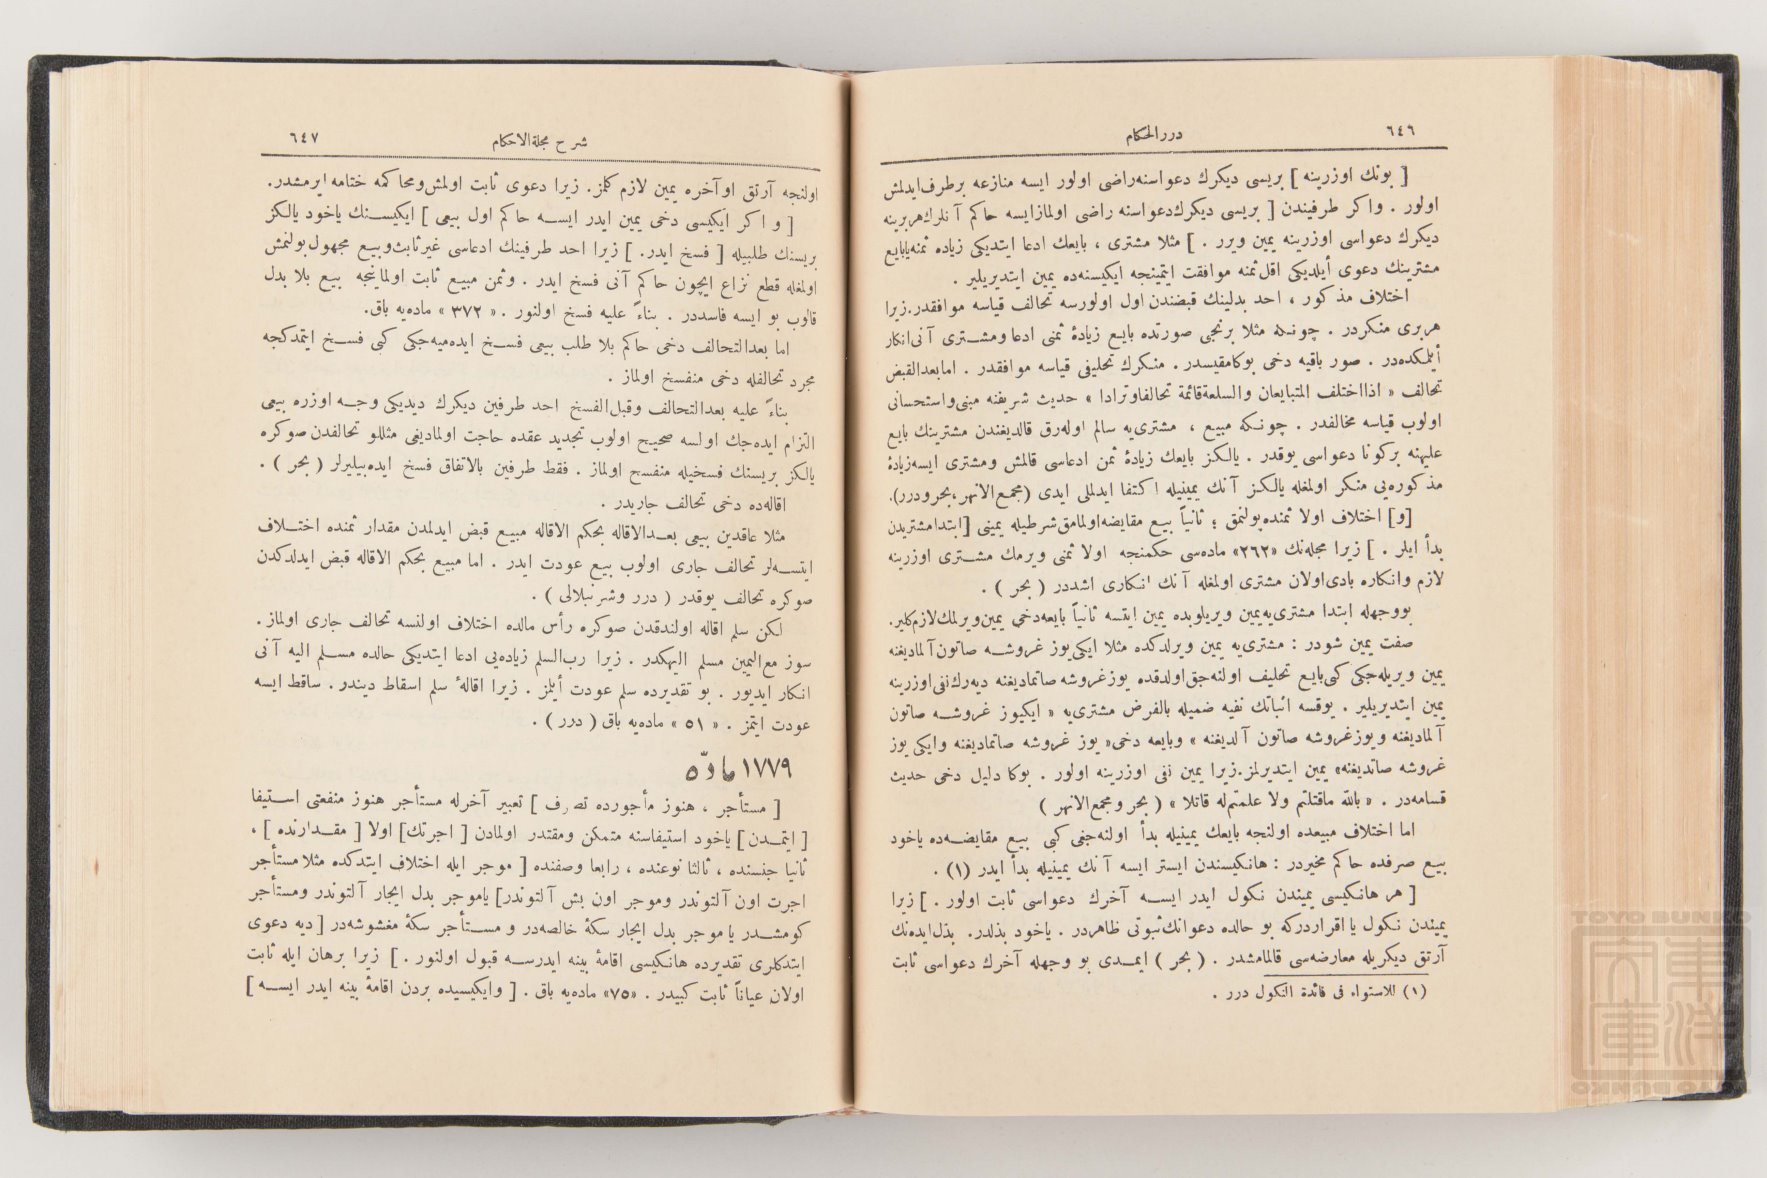 ٦٤٦
دررالحكام
[ بونك اوزرينه ] بريسى ديكرك دعواسنه‌راضى اولور ايسه منازعه برطرف‌ايدلمش
اولور . واكر طرفيندن [ بريسى ديكرك‌دعواسنه راضى اولمازايسه حاكم آنلرك‌هربرينه
ديكرك دعواسى اوزرينه يمين ويرر . ] مثلا مشترى ، بايعك ادعا ايتديكى زياده ثمنه‌يابايع
مشترينك دعوى أيلديكى اقل‌ثمنه موافقت ايتمينجه ايكيسنه‌ده يمين ايتديريلير .
اختلاف مذكور ، احد بدلينك قبضندن اول اولورسه تحالف قياسه موافقدر.زيرا
هربرى منكردر . چونكه مثلا برنجى صورتده بايع زيادهٔ ثمنى ادعا ومشترى آنى‌انكار
أيلمكده‌در . صور باقيه دخى بوكامقيسدر . منكرك تحليفى قياسه موافقدر . امابعدالقبض
تحالف « اذااختلف المتبايعان والسلعةقائمة تحالفاوترادا » حديث شريفنه مبنى‌واستحسانى
اولوب قياسه مخالفدر . چونكه مبيع ، مشترى‌يه سالم اوله‌رق قالديغندن مشترينك بايع
عليهنه بركونا دعواسى يوقدر . يالكز بايعك زيادهٔ ثمن ادعاسى قالمش ومشترى ايسه‌زيادهٔ
مذكوره‌يى منكر اولمغله يالكز آنك يمينيله اكتفا ايدلملى ايدى (مجمع‌الانهر،بحرودرر).
[و] اختلاف اولا ثمنده‌بولنمق ؛ ثانياً بيع مقايضه‌اولمامق‌شرطيله يمينى [ابتدامشتريدن
بدأ ايلر . ] زيرا مجله‌نك «٢٦٢» ماده‌سى حكمنجه اولا ثمنى ويرمك مشترى اوزرينه
لازم وانكاره بادى‌اولان مشترى اولمغله آنك انكارى اشددر ( بحر ) .
بووجهله ابتدا مشترى‌يه‌يمين ويريلوبده يمين ايتسه ثانياً بايعه‌دخى يمين‌ويرلمك‌لازم‌كلير.
صفت يمين شودر : مشترى‌يه يمين ويرلدكده مثلا ايكى‌يوز غروشه صاتون‌آلماديغنه
يمين ويريله‌جكى كبى‌بايع تحليف اولنه‌جق‌اولدقده يوزغروشه صاتماديغنه ديه‌رك‌نفى‌اوزرينه
يمين ايتديريلير . يوقسه اثباتك نفيه ضميله بالفرض مشترى‌يه « ايكيوز غروشه صاتون
آلماديغنه ويوزغروشه صاتون آلديغنه » وبايعه دخى« يوز غروشه صاتماديغنه وايكى يوز
غروشه صاتديغنه» يمين ايتديرلمز.زيرا يمين نفى اوزرينه اولور . بوكا دليل دخى حديث
قسامه‌در . « بالله ماقتلتم ولا علمتم‌له قاتلا » ( بحر ومجمع‌الانهر )
اما اختلاف مبيعده اولنجه بايعك يمينيله بدأ اولنه‌جغى كبى بيع مقايضه‌ده ياخود
بيع صرفده حاكم مخيردر : هانكيسندن ايستر ايسه آنك يمينيله بدأ ايدر (١) .
[ هر هانكيسى يميندن نكول ايدر ايسه آخرك دعواسى ثابت اولور . ] زيرا
يميندن نكول يا اقراردركه بو حالده دعوانك‌ثبوتى ظاهردر . ياخود بذلدر. بذل‌ايده‌نك
آرتق ديكريله معارضه‌سى قالمامشدر . ( بحر ) ايمدى بو وجهله آخرك دعواسى ثابت
(١) للاستواء فى فائدة النكول درر .
شرح مجلةالاحكام
٦٤٧
اولنجه آرتق اوآخره يمين لازم كلمز. زيرا دعوى ثابت اولمش‌ومحاكمه ختامه ايرمشدر.
[ و اكر ايكيسى دخى يمين ايدر ايسه حاكم اول بيعى ] ايكيسنك ياخود يالكز
بريسنك طلبيله [ فسخ ايدر. ] زيرا احد طرفينك ادعاسى غيرثابت‌وبيع مجهول‌بولنمش
اولمغله قطع نزاع ايچون حاكم آنى فسخ ايدر . وثمن مبيع ثابت اولماينجه بيع بلا بدل
قالوب بو ايسه فاسددر . بناءً عليه فسخ اولنور . « ٣٧٢ » ماده‌يه باق.
اما بعدالتحالف دخى حاكم بلا طلب بيعى فسخ ايده‌ميه‌جكى كبى فسخ ايتمدكجه
مجرد تحالفله دخى منفسخ اولماز .
بناءً عليه بعدالتحالف وقبل‌الفسخ احد طرفين ديكرك ديديكى وجه اوزره بيعى
التزام ايده‌جك اولسه صحيح اولوب تجديد عقده حاجت اولماديغى مثللو تحالفدن صوكره
يالكز بريسنك فسخيله منفسخ اولماز . فقط طرفين بالاتفاق فسخ ايده‌بيليرلر ( بحر ) .
اقاله‌ده دخى تحالف جاريدر .
مثلا عاقدين بيعى بعدالاقاله بحكم الاقاله مبيع قبض ايدلمدن مقدار ثمنده اختلاف
ايتسه‌لر تحالف جارى اولوب بيع عودت ايدر . اما مبيع بحكم الاقاله قبض ايدلدكدن
صوكره تحالف يوقدر ( درر وشرنبلالى ) .
لكن سلم اقاله اولندقدن صوكره رأس مالده اختلاف اولنسه تحالف جارى اولماز .
سوز مع‌اليمين مسلم اليهكدر . زيرا رب‌السلم زياده‌يى ادعا ايتديكى حالده مسلم اليه آنى
انكار ايديور . بو تقديرده سلم عودت أيلمز . زيرا اقالهٔ سلم اسقاط ديندر . ساقط ايسه
عودت ايتمز . « ٥١ » ماده‌يه باق ( درر ) .
١٧٧٩ مادّه
[ مستأجر ، هنوز مأجورده تصرف ] تعبير آخرله مستأجر هنوز منفعتى استيفا
[ ايتمدن ] ياخود استيفاسنه متمكن ومقتدر اولمادن [ اجرتك] اولا [ مقدارنده ] ،
ثانيا جنسنده ، ثالثا نوعنده ، رابعا وصفنده [ موجر ايله اختلاف ايتدكده مثلا مستأجر
اجرت اون آلتوندر وموجر اون بش آلتوندر] ياموجر بدل ايجار آلتوندر ومستأجر
كومشدر يا موجر بدل ايجار سكهٔ خالصه‌در و مستأجر سكهٔ مغشوشه‌در [ ديه دعوى
ايتدكلرى تقديرده هانكيسى اقامهٔ بينه ايدرسه قبول اولنور . ] زيرا برهان ايله ثابت
اولان عياناً ثابت كبيدر . «٧٥» ماده‌يه باق . [ وايكيسيده بردن اقامهٔ بينه ايدر ايسه ]
TOYO BUNKO
東洋文庫
TOYO BUNKO